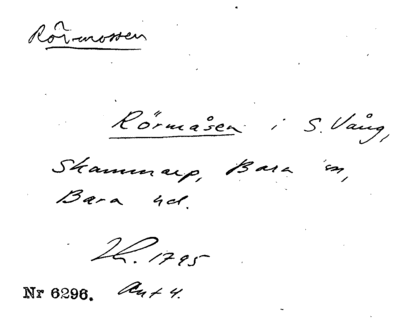 Rörmossen
Rörmåsen i S. Vång,
Skammarp, Bara sn,
Bara hd.
LK. 1795
Nr 6296. Akt 4.